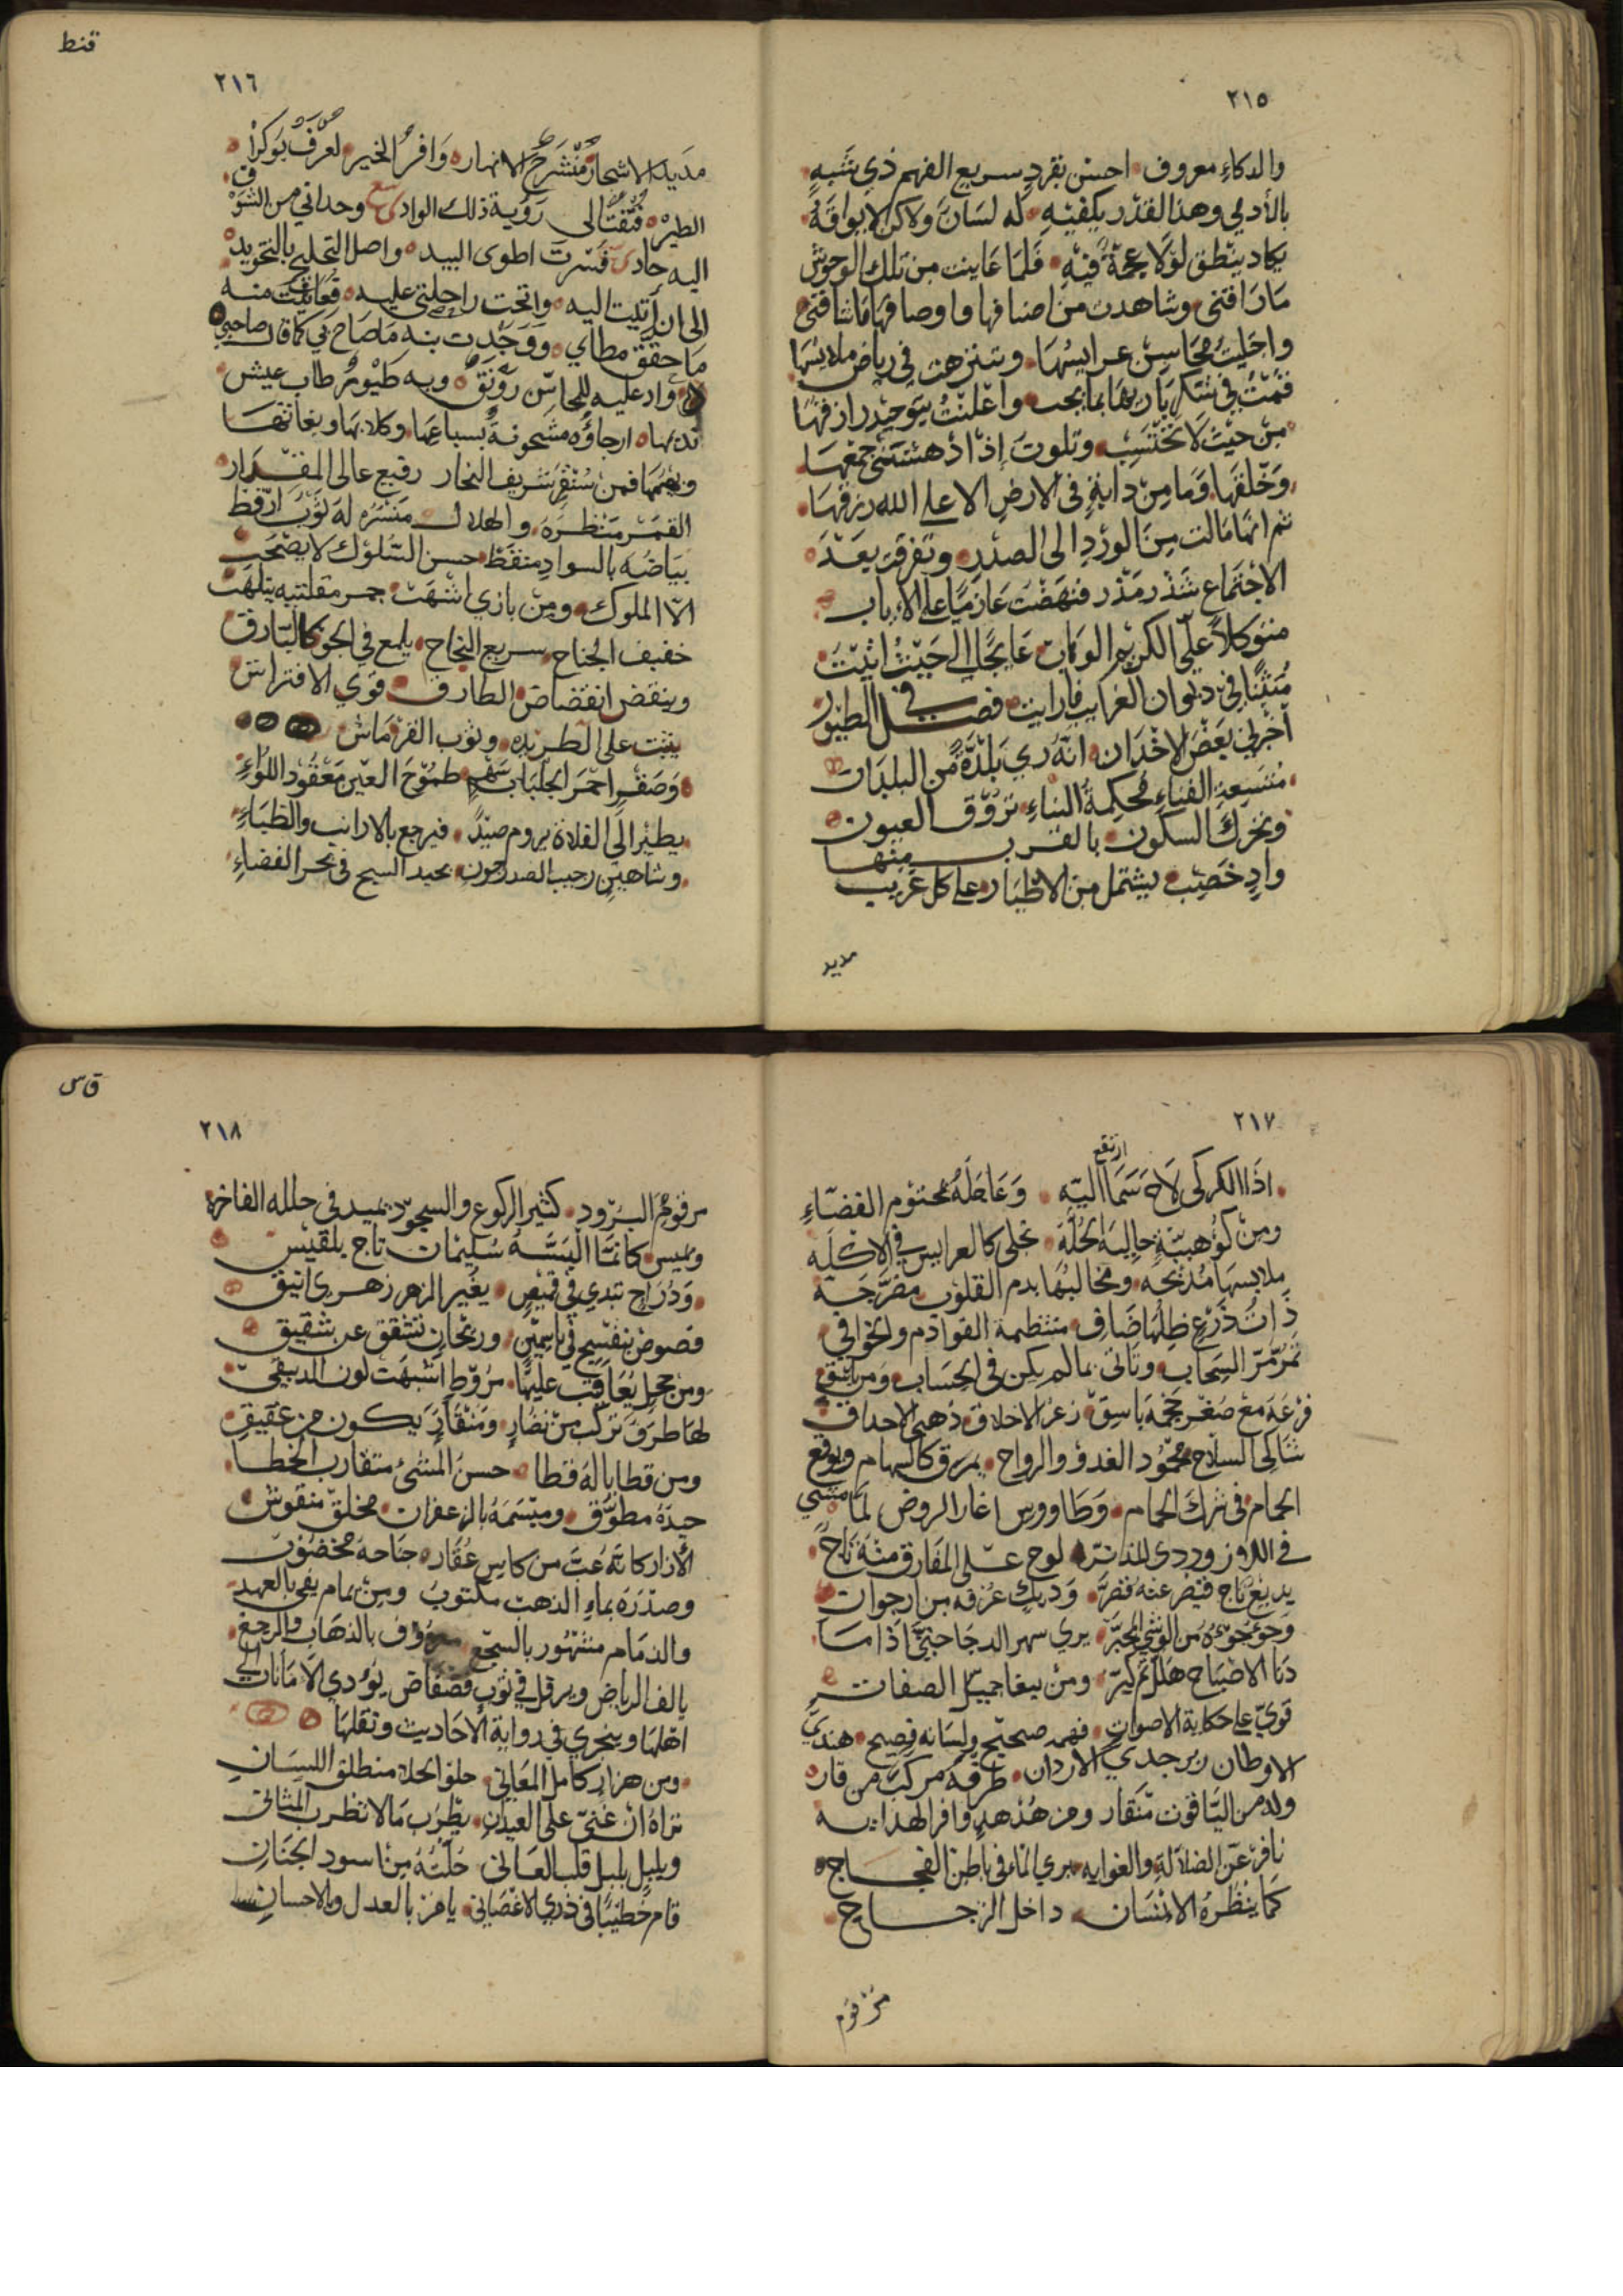 ٢١٥
والدكاءِ معروف احسن بقردٍ سريع الفهم ذي شَبهٍ
بالأدمي وهذا القدر يكفيه له لسَانَ ولاكن لا يوافقهُ
يكاد ينطق لولا عجمةٌ فيهِ فلما عَاينت من تلك الوحوش
مَارَاقني وشاهدت من اصنافها واوصافها مَا شاقني
واجليتُ محَاسِن عرايسُهَا وتنزهت في رياض ملابسُهَا
فقمت في شكر باريها بما يجب واعلنتُ بتوحيد رازقهَا
من حَيْث لا يحتَسِب وتلوت إذا ادهشتني جمعهَا
وَخَلقهَا وَمَا مِن دَابةٍ في الارضِ الا على الله رزقهَا
ثم انها مَالت مِنَ الورْدِ الى الصدرِ وتفرقت بَعْدَ
الاجتماع شَذَر مَذَر فنهضت عَازمًا على الاياب
متوكلاً على الكريم الوهاب عَايجًا الى حَيْث اتيْت
مُثبتًا في ديوان الغرايب مَا رايت فصل في الطيور
اخبرني بعَضَ الاخدَان انه رَي بَلْدَةً من البلدَان
مُتسَعِة الفناءِ محكمة البناءِ تروّق العيون
وتحرك السكون بالقرب منها
وادٍ خَصِيب يشتمل من الاطيَار على كل غريب
مديد
قنط
٢١٦
مَديد الاشجار منشرح الانهار وَافر الخير لعرف بَوكرا
الطير فتقت الى رَؤية ذلك الوادي وحداني من الشوق
اليه حادي فسرت اطوي البيد واصل التحليج بالتخويد
الى ان أتيت اليه واتخت راحلتي عليه فعاينت منه
مَا حقق مطاي ووَجَدت به مَا صَاح بي كما قال صاحبي
واد عليه للمحاسِن رَوْنَقٌ وبه طَيُورٌ طاب عيش
ندهها ارجاؤه مشحونةٌ بسباعِها وكلابها وبغاثها
وبعمها فمن سُنقرٍ شريف النجار رفيع عالي المقدار
القمر مَنظره والهلال منشرُه له ثوب ارقظ
بيَاضُه بالسوادِ منقط حسن السُلوك لا يصْحَب
الاّ الملوك ومِن بازي اشهَت جمر مقلتيه يتلهت
خفيف الجناح سريع النجاح يلمع في الجو كالبَارق
وينقض انقضاض الطارق قوَي الافتراش
يثبت على الطريده وثوب الفرْمَاش
وَصَقرٍ احمَر الجلبَاب طمُوْح العين مَعْقُود اللوَاءِ
يطيرُ الى الفلاة يروم صيْدً فيرجع بالارانب والظبَاءِ
وشاهينٍ رحيب الصدر جون يحيد السبح في بحر الفضاءِ
٢١٧
ارتفع
اذَا الكركى لاحَ سَمَا اليْه وَعَاجَلهُ محتوم القضَاءِ
ومن كُوْهيّةٍ حَاليَه الحُلَّة تجلى كالعرايس في الاكلَّه
ملابسها مُدبّجه ومخالبُهَا بدم القلوب مضرَّجَة
ذَات ذَرْع ظِلُهَا ضَاف منتظمة القوادم والخوافي
تمرّ مَرّ السحَاب وتاتي بما لم يكن في الحِسَاب ومن باشق
فرعَه مَعَ صغر حجمه بَاسِق زعر الاخلاق ذهبي الاحداق
شَاكي السلاح محمُود الغدو والرواح يمرق كالسهام ويوقع
الحمام في شرك الحمام وَطَاووس اغار الروض لما مشي
في اللازوردي المدَاثر لوح على المفارق منهُ تَاجً
بديع تاج فيضر عنهُ فضرَّ وَدِيكٍ عُرفه من ارجوان
وَجَوْجَوءَهُ من الوشي المحبَّر يري سهر الدجا حتى اذا مَا
دَنا الاصْبَاح هَلل ثم كبَّر ومن ببغا جميل الصفات
قويّ على حكاية الاصوات فهمه صحيح ولسَانه فصيح هندي
الاوطان زبرجدي الاردان طرفه مركب من قار
وله من اليَاقوت منقار ومن هُدْهدٍ وافر الهدايه
نافرٌ عَن الضلالة والغوايه يري الماءَ في باطن الفجاج
كمَا ينظُرهُ الانسَان داخل الزجاج
مُرْقوُم
قاس
٢١٨
مرقومُ البرُود كثير الركوع والسجود يميد في حلله الفاخره
وبميس كانمَا البَسَهُ سُليمَان تاج بلقيْس
وَدُرَاج تبدي في قميْصٍ يغير الزهر زهري انيق
فصوض بنفسجٍ في يَاسمِيْن ورَيحَان تشقق عن شقيق
ومن حجل يُعَاقبُ عليْها مرُوطِ اشبهَت لون الدبيقيّ
لها طرَفٌ تركب من نضَارٍ ومَنْقَارَ يكون من عَقيقٍ
ومن قطا باله قطا حسنُ المشي متقارب الخطا
جيدَهُ مطوّق ومبْسَمَهُ بالزعفران مخلق منقوش
الأزار كانه عَبّ من كاسِ عُقار جَناحهُ مخضُوب
وصدْرَه بماءِ الذهب مكتوب ومن حمام يفي بالعهد
والذمَام مشهُور بالسجْع معروف بالذهاب والرجْع
يالف الرياض ويرفل في ثوب فضفَاض يؤدي الامَانات الى
اهلهَا ويتحري في رواية الاحَاديث ونقلهَا
ومن هزار كامل المعَاني حلوَ الحلا منطلق اللسَان
تراهُ ان غني على العيدانِ يطربُ مَا لا تطرب المثاني
وبلبل بلبل قلب العَاني حُلَّتُهُ مِنْ اسود الجنَان
قام خَطيبًا في ذري الاغصَانِ يامُر بالعدل والاحسان